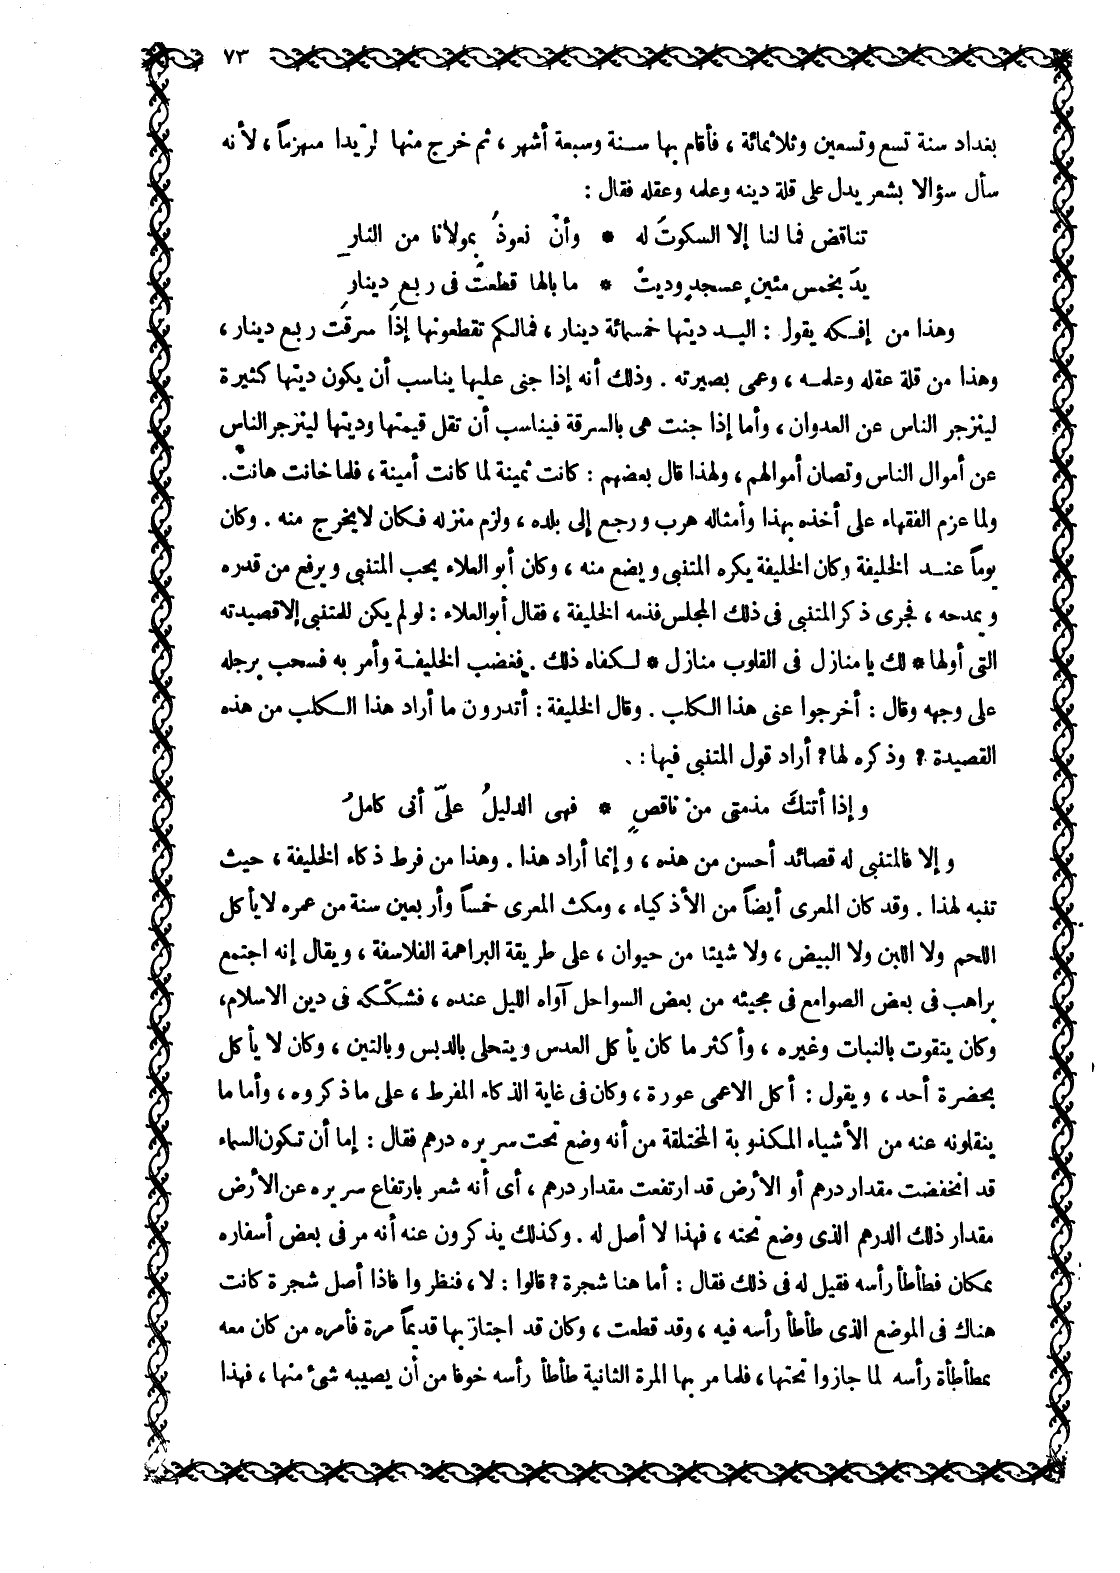 ٧٣
بغداد سنة تسع وتسعين وثلاثمائة ، فأقام بها سنة وسبعة أشهر ، ثم خرج منها طريدا منهزماً ، لأنه
سأل سؤالا بشعر يدل على قلة دينه وعلمه وعقله فقال :
تناقض فما لنا إلا السكوتَ له * وأنْ نعوذُ بمولانا من النارِ
يدٌ بخمس مئينٍ عسجدٍ وديتْ * ما بالها قطعتْ فى ربعِ دينارِ
وهذا من إفكه يقول : اليد ديتها خمسمائة دينار ، فمالكم تقطعونها إذا سرقت ربع دينار ،
وهذا من قلة عقله وعلمه ، وعمى بصيرته . وذلك أنه إذا جنى عليها يناسب أن يكون ديتها كثيرة
لينزجر الناس عن العدوان ، وأما إذا جنت هى بالسرقة فيناسب أن تقل قيمتها وديتها لينزجر الناس
عن أموال الناس وتصان أموالهم ، ولهذا قال بعضهم : كانت ثمينة لما كانت أمينة ، فلما خانت هانتْ.
ولما عزم الفقهاء على أخذه بهذا وأمثاله هرب ورجع إلى بلده ، ولزم منزله فكان لايخرج منه . وكان
يوماً عند الخليفة وكان الخليفة يكره المتنبى ويضع منه ، وكان أبو العلاء يحب المتنبى ويرفع من قدره
ويمدحه ، فجرى ذكر المتنبى فى ذلك المجلس فذمه الخليفة ، فقال أبو العلاء : لو لم يكن للمتنبى إلا قصيدته
التى أولها * لك يا منازل فى القلوب منازل * لكفاه ذلك . فغضب الخليفة وأمر به فسحب برجله
على وجهه وقال : أخرجوا عنى هذا الكلب . وقال الخليفة : أتدرون ما أراد هذا الكلب من هذه
القصيدة ? وذكره لها ? أراد قول المتنبى فيها :
وإذا أتتكَ مذمتى منْ ناقصٍ * فهى الدليلُ علىّ أنى كاملُ
وإلا فالمتنبى له قصائد أحسن من هذه ، وإنما أراد هذا . وهذا من فرط ذكاء الخليفة ، حيث
تنبه لهذا . وقد كان المعرى أيضاً من الأذكياء ، ومكث المعرى خمساً وأربعين سنة من عمره لايأكل
اللحم ولا اللبن ولا البيض ، ولا شيئا من حيوان ، على طريقة البراهمة الفلاسفة ، ويقال إنه اجتمع
براهب فى بعض الصوامع فى مجيئه من بعض السواحل آواه الليل عنده ، فشكّكه فى دين الاسلام،
وكان يتقوت بالنبات وغيره ، وأكثر ما كان يأكل العدس ويتحلى بالدبس وبالتين ، وكان لا يأكل
بحضرة أحد ، ويقول : أكل الاعمى عورة ، وكان فى غاية الذكاء المفرط ، على ما ذكروه ، وأما ما
ينقلونه عنه من الأشياء المكذوبة المختلقة من أنه وضع تحت سريره درهم فقال : إما أن تكون السماء
قد انخفضت مقدار درهم أو الأرض قد ارتفعت مقدار درهم ، أى أنه شعر بارتفاع سريره عن الأرض
مقدار ذلك الدرهم الذى وضع تحته ، فهذا لا أصل له . وكذلك يذكرون عنه أنه مر فى بعض أسفاره
بمكان فطأطأ رأسه فقيل له فى ذلك فقال : أما هنا شجرة ? قالوا : لا ، فنظروا فاذا أصل شجرة كانت
هناك فى الموضع الذى طأطأ رأسه فيه ، وقد قطعت ، وكان قد اجتاز بها قديماً مرة فأمره من كان معه
بمطأطأة رأسه لما جازوا تحتها ، فلما مر بها المرة الثانية طأطأ رأسه خوفا من أن يصيبه شئ منها ، فهذا